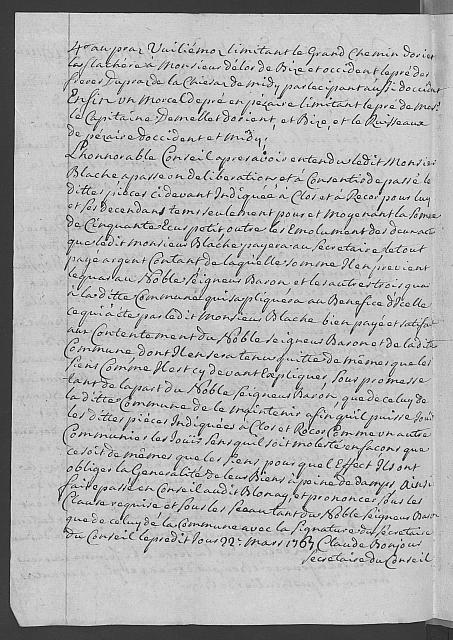 4° au praz Vuiliémoz limitant le Grand Chemin dorient
la flachère à Monsieur Délor de Bize et occident le pré des
frères Dupraz de la Chiesaz de midy par lecipant aussi doccident
Enfin un Morcel de pré en pezaire limitant le pré de Mons
le Capitaine Demellet dorient, et Bize, et le Ruisseaux
de pézaire doccident et Midy,
L'honnorable Conseil apres avoir entendu ledit Monsieur
Blache a passé en deliberation et à Consentis de passé le
dittes pièces ci devant Indiquéé à Clos et à Recor pour luy
et Ses decendans tems seulement pour et Moyenant la Somme
de Cinquante Ecus petit outre les Emolument des dun acte
que ledit monsieur Blache payera au Secretaire le tout
payé argent Contant de laquelle somme Il en previent
le quar au Noble Seigneur Baron et les autres trois quar
à la ditte Commune qui sapliquera au Benefice dicelle
ce qui à étés par ledit Monsieur Blache bien payé et satisfai
au Contentement du Noble seigneur Baron et de la dite
Commune, dont Il en sera tenus quitte de mêmes que les
Siens Comme Il est cy devant Expliqués, Sous promesse
tant de la part du Noble Seigneur Baron, que de celuy de
la ditte Commune de le maintenir afin quil puisse Jouir
les dittes pièces Indiquées à Clos et Recor Comme un autre
Communier les Jouis Sans quil soit molesté en façons que
ce soit de mêmes que les siens, pour quel Effect Ils ont
obliger la Généralité de leurs Biens à peine de damps Ainsi
fait et passé en Conseil audit Blonay, et prononcer sous les
Clause requise et sous les Sceau tant du Noble Seigneur Baron
que de celuy de la Commune avec la Signature du Secretaire
du Conseil le prédit Jour 22e Mars 1763 Claude Bonjour
Secretaire du Conseil